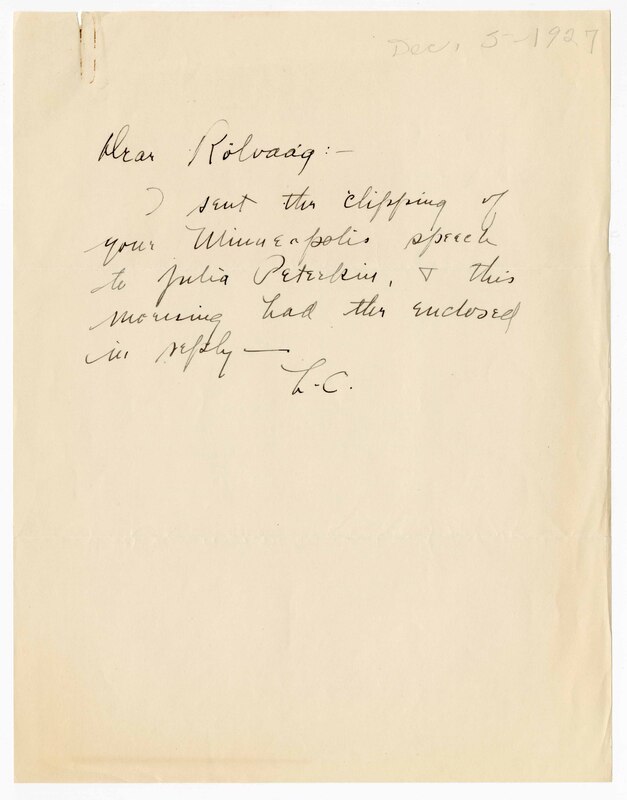 Dec. 5-1927
Dear Rölvaag:—
I sent the clipping of
your Minneapolis speech
to Julia Peterkin, & this
morning had the enclosed
in reply—
L.C.